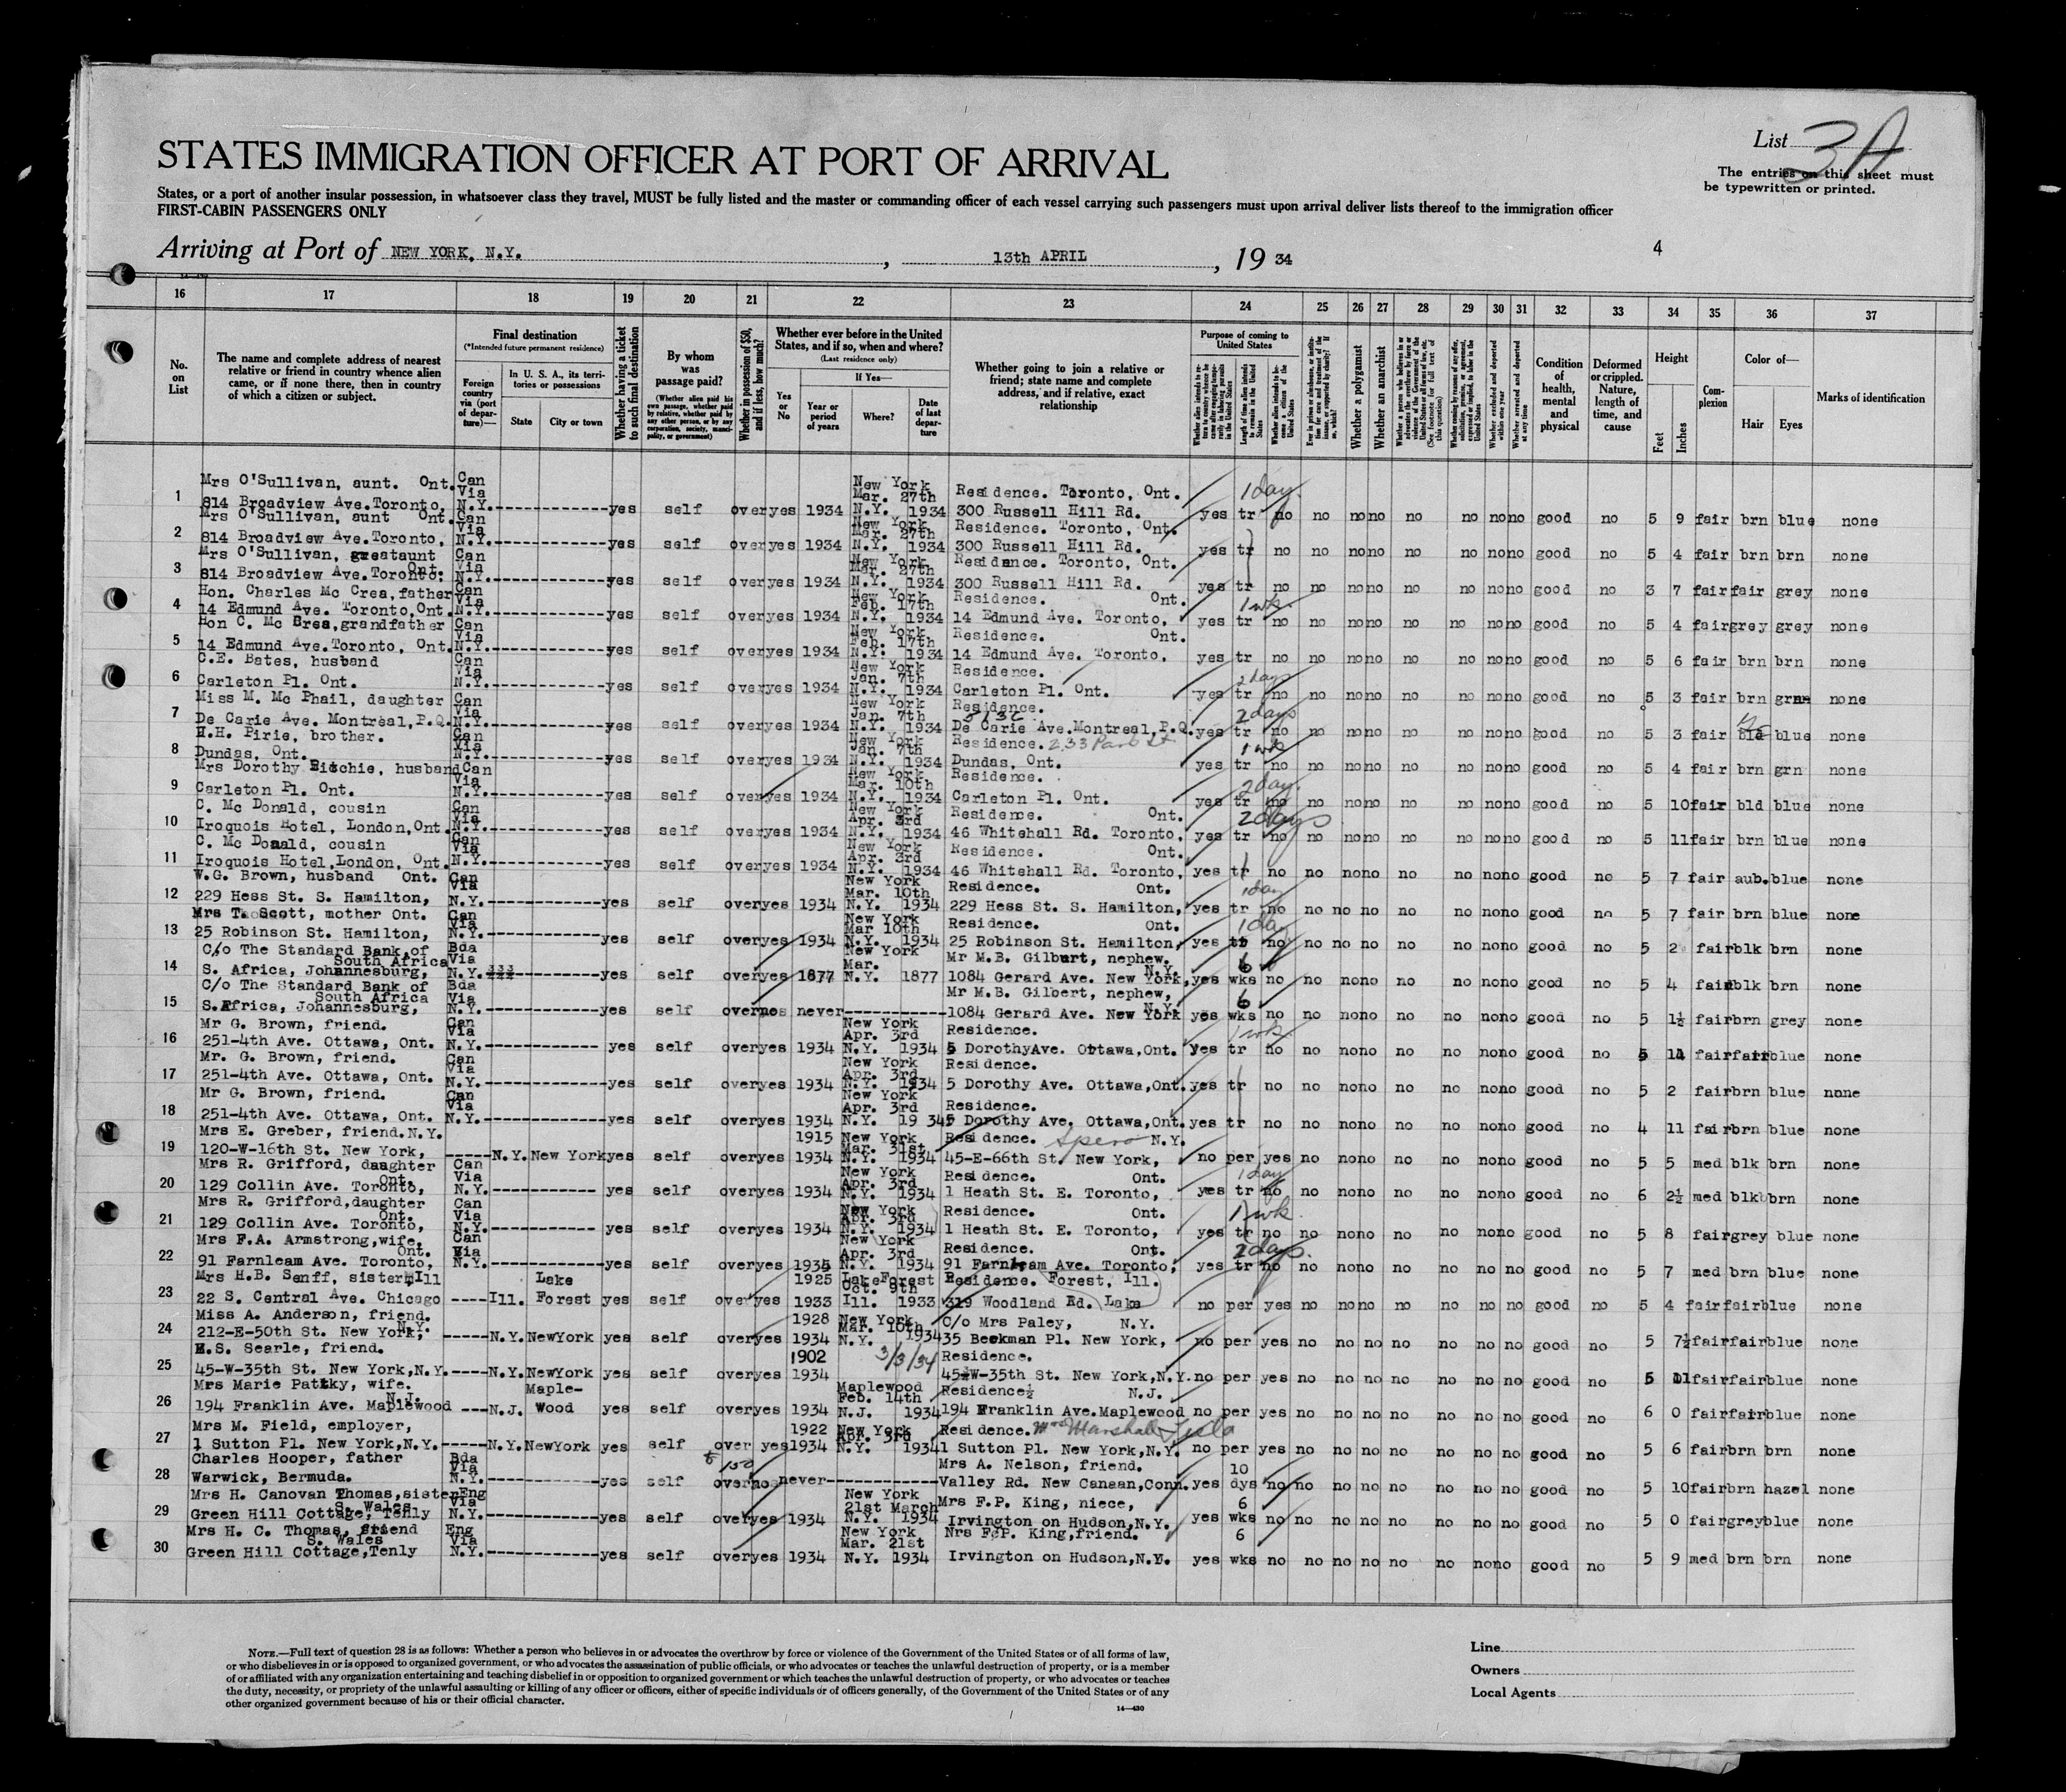 List 3A
STATES IMMIGRATION OFFICER AT PORT OF ARRIVAL
The entries on this sheet must
be typewritten or printed.
States, or a port of another insular possession, in whatsoever class they travel, MUST be fully listed and the master or commanding officer of each vessel carrying such passengers must upon arrival deliver lists thereof to the immigration officer
FIRST-CABIN PASSENGERS ONLY
Arriving at Port of NEW YORK, N.Y. , 13th APRIL , 19 34
4
16 17 18 19 20 21 22 23 24 25 26 27 28 29 30 31 32 33 34 35 36 37
No. on List
The name and complete address of nearest relative or friend in country whence alien came, or if none there, then in country of which a citizen or subject.
Final destination
(*Intended future permanent residence)
Foreign country via (port of departure)—
In U. S. A., its territories or possessions
State
City or town
Whether having a ticket to such final destination
By whom was passage paid?
(Whether alien paid his own passage, whether paid by relative, whether paid by any other person, or by any corporation, society, municipality, or government)
Whether in possession of $50, and if less, how much?
Whether ever before in the United States, and if so, when and where?
(Last residence only)
Yes or No
If Yes—
Year or period of years
Where?
Date of last departure
Whether going to join a relative or friend; state name and complete address, and if relative, exact relationship
Purpose of coming to United States
Length of time alien intends to remain in the United States
Whether alien intends to become a citizen of the United States
Whether a polygamist
Whether an anarchist
Whether excluded and deported within one year
Whether arrested and deported at any time
Condition of health, mental and physical
Deformed or crippled. Nature, length of time, and cause
Height
Feet
Inches
Complexion
Color of—
Hair
Eyes
Marks of identification
1 Mrs O'Sullivan, aunt. Ont. 814 Broadview Ave. Toronto, Can Via N.Y. yes self over yes 1934 New York Mar. 27th N.Y. 1934 Residence. Toronto, Ont. 300 Russell Hill Rd. 1 day yes tr no no no no no no no no good no 5 9 fair brn blue none
2 Mrs O'Sullivan, aunt Ont. 814 Broadview Ave. Toronto, Can Via N.Y. yes self over yes 1934 New York Mar. 27th N.Y. 1934 Residence. Toronto, Ont. 300 Russell Hill Rd. yes tr no no no no no no no no good no 5 4 fair brn brn none
3 Mrs O'Sullivan, greataunt Ont. 814 Broadview Ave. Toronto. Can Via N.Y. yes self over yes 1934 New York Mar. 27th N.Y. 1934 Residence. Toronto, Ont. 300 Russell Hill Rd. yes tr no no no no no no no no good no 3 7 fair fair grey none
4 Hon. Charles Mc Crea, father 14 Edmund Ave. Toronto, Ont. Can Via N.Y. yes self over yes 1934 New York Feb. 17th N.Y. 1934 Residence. Ont. 14 Edmund Ave. Toronto, 1 wk. yes tr no no no no no no no no good no 5 4 fair grey grey none
5 Hon C. Mc Brea, grandfather 14 Edmund Ave. Toronto, Ont. Can Via N.Y. yes self over yes 1934 New York Feb. 17th N.Y. 1934 Residence. Ont. 14 Edmund Ave. Toronto, yes tr no no no no no no no no good no 5 6 fair brn brn none
6 C.E. Bates, husband Carleton Pl. Ont. Can Via N.Y. yes self over yes 1934 New York Jan. 7th N.Y. 1934 Residence. Carleton Pl. Ont. 2 days yes tr no no no no no no no no good no 5 3 fair brn grn none
7 Miss M. Mc Phail, daughter De Carie Ave. Montreal, P.Q. Can Via N.Y. yes self over yes 1934 New York Jan. 7th N.Y. 1934 Residence. De Carie Ave. Montreal, P.Q. 2 days yes tr no no no no no no no no good no 5 3 fair blue none
8 H.H. Pirie, brother. Dundas, Ont. Can Via N.Y. yes self over yes 1934 New York Jan. 7th N.Y. 1934 Residence. 233 Park St Dundas, Ont. 1 wk yes tr no no no no no no no no good no 5 4 fair brn grn none
9 Mrs Dorothy Ritchie, husband Carleton Pl. Ont. Can Via N.Y. yes self over yes 1934 New York Mar. 10th N.Y. 1934 Residence. Carleton Pl. Ont. 2 day. yes tr no no no no no no no no good no 5 10 fair bld blue none
10 C. Mc Donald, cousin Iroquois Hotel, London, Ont. Can Via N.Y. yes self over yes 1934 New York Apr. 3rd N.Y. 1934 Residence. Ont. 46 Whitehall Rd. Toronto, 2 days yes tr no no no no no no no no good no 5 11 fair brn blue none
11 C. Mc Donald, cousin Iroquois Hotel, London, Ont. Can Via N.Y. yes self over yes 1934 New York Apr. 3rd N.Y. 1934 Residence. Ont. 46 Whitehall Rd. Toronto, yes tr no no no no no no no no good no 5 7 fair aub. blue none
12 W.G. Brown, husband Ont. 229 Hess St. S. Hamilton, Can Via N.Y. yes self over yes 1934 New York Mar. 10th N.Y. 1934 Residence. Ont. 229 Hess St. S. Hamilton, 1 day yes tr no no no no no no no no good no 5 7 fair brn blue none
13 Mrs T. Scott, mother Ont. 25 Robinson St. Hamilton, Can Via N.Y. yes self over yes 1934 New York Mar 10th N.Y. 1934 Residence. Ont. 25 Robinson St. Hamilton, 1 day yes tr no no no no no no no no good no 5 2 fair blk brn none
14 C/o The Standard Bank of South Africa S. Africa, Johannesburg, Bda Via N.Y. yes self over yes 1877 New York Mar. N.Y. 1877 Mr M.B. Gilburt, nephew. N.Y. 1084 Gerard Ave. New York, 6 yes wks no no no no no no no no good no 5 4 fair blk brn none
15 C/o The Standard Bank of South Africa S. Africa, Johannesburg, Bda Via N.Y. yes self over no never Mr M.B. Gilbert, nephew, N.Y. 1084 Gerard Ave. New York 6 yes wks no no no no no no no no good no 5 1½ fair brn grey none
16 Mr G. Brown, friend. 251-4th Ave. Ottawa, Ont. Can Via N.Y. yes self over yes 1934 New York Apr. 3rd N.Y. 1934 Residence. 5 Dorothy Ave. Ottawa, Ont. 1 wk yes tr no no no no no no no no good no 5 11 fair fair blue none
17 Mr. G. Brown, friend. 251-4th Ave. Ottawa, Ont. Can Via N.Y. yes self over yes 1934 New York Apr. 3rd N.Y. 1934 Residence. 5 Dorothy Ave. Ottawa, Ont. yes tr no no no no no no no no good no 5 2 fair brn blue none
18 Mr G. Brown, friend. 251-4th Ave. Ottawa, Ont. Can Via N.Y. yes self over yes 1934 New York Apr. 3rd N.Y. 19 34 Residence. 5 Dorothy Ave. Ottawa, Ont. yes tr no no no no no no no no good no 4 11 fair brn blue none
19 Mrs E. Greber, friend. N.Y. 120-W-16th St. New York, N.Y. New York yes self over yes 1915 1934 New York Mar. 31st N.Y. 1934 Residence. Spero N.Y. 45-E-66th St. New York, no per yes no no no no no no no good no 5 5 med blk brn none
20 Mrs R. Grifford, daughter Ont. 129 Collin Ave. Toronto, Can Via N.Y. yes self over yes 1934 New York Apr. 3rd N.Y. 1934 Residence. Ont. 1 Heath St. E. Toronto, 1 day yes tr no no no no no no no no good no 6 2½ med blk brn none
21 Mrs R. Grifford, daughter Ont. 129 Collin Ave. Toronto, Can Via N.Y. yes self over yes 1934 New York Apr. 3rd N.Y. 1934 Residence. Ont. 1 Heath St. E. Toronto, 1 wk. yes tr no no no no no no no no good no 5 8 fair grey blue none
22 Mrs F.A. Armstrong, wife, Ont. 91 Farnleam Ave. Toronto, Can Via N.Y. yes self over yes 1934 New York Apr. 3rd N.Y. 1934 Residence. Ont. 91 Farnham Ave. Toronto, 2 days. yes tr no no no no no no no no good no 5 7 med brn blue none
23 Mrs H.B. Senff, sister Ill 22 S. Central Ave. Chicago Ill. Lake Forest yes self over yes 1925 1933 Lake Forest Oct. 9th Ill. 1933 Residence. Forest, Ill. 319 Woodland Rd. Lake no per yes no no no no no no no good no 5 4 fair fair blue none
24 Miss A. Anderson, friend. N.Y. 212-E-50th St. New York, N.Y. New York yes self over yes 1928 1934 New York Mar. 10th N.Y. 1934 C/o Mrs Paley, N.Y. 35 Beekman Pl. New York, no per yes no no no no no no no good no 5 7½ fair fair blue none
25 E.S. Searle, friend. 45-W-35th St. New York, N.Y. N.Y. New York yes self over yes 1902 1934 3/3/34 Residence. 45-W-35th St. New York, N.Y. no per yes no no no no no no no good no 5 11 fair fair blue none
26 Mrs Marie Pattky, wife. N.J. 194 Franklin Ave. Maplewood N.J. Maple-wood yes self over yes 1934 Maplewood Feb. 14th N.J. 1934 Residence N.J. 194 Franklin Ave. Maplewood no per yes no no no no no no no good no 6 0 fair fair blue none
27 Mrs M. Field, employer, 1 Sutton Pl. New York, N.Y. N.Y. New York yes self over yes 1922 1934 New York Apr. 3rd N.Y. 1934 Residence. Mrs Marshall Field 1 Sutton Pl. New York, N.Y. no per yes no no no no no no no good no 5 6 fair brn brn none
28 Charles Hooper, father Warwick, Bermuda. Bda Via N.Y. yes self 150 over no never Mrs A. Nelson, friend. Valley Rd. New Canaan, Conn. 10 yes dys no no no no no no no no good no 5 10 fair brn hazel none
29 Mrs H. Canovan Thomas, sister S. Wales Green Hill Cottage, Tenly Eng Via N.Y. yes self over yes 1934 New York 21st March N.Y. 1934 Mrs F.P. King, niece, Irvington on Hudson, N.Y. 6 yes wks no no no no no no no no good no 5 0 fair grey blue none
30 Mrs H. C. Thomas, friend S. Wales Green Hill Cottage, Tenly Eng Via N.Y. yes self over yes 1934 New York Mar. 21st N.Y. 1934 Nrs F.P. King, friend. Irvington on Hudson, N.Y. 6 yes wks no no no no no no no no good no 5 9 med brn brn none
NOTE.—Full text of question 28 is as follows: Whether a person who believes in or advocates the overthrow by force or violence of the Government of the United States or of all forms of law,
or who disbelieves in or is opposed to organized government, or who advocates the assassination of public officials, or who advocates or teaches the unlawful destruction of property, or is a member
of or affiliated with any organization entertaining and teaching disbelief in or opposition to organized government or which teaches the unlawful destruction of property, or who advocates or teaches
the duty, necessity, or propriety of the unlawful assaulting or killing of any officer or officers, either of specific individuals or of officers generally, of the Government of the United States or of any
other organized government because of his or their official character.
14—430
Line
Owners
Local Agents